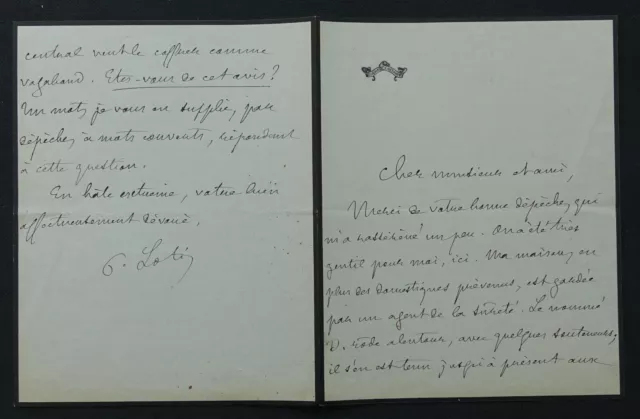 Cher monsieur et ami,
Merci de votre bonne dépêche, qui
m'a rasséréné un peu. On a été très
gentil pour moi, ici. Ma maison, en
plus des domestiques prévenus, est gardée
par un agent de la sûreté. Le nommé
rôde alentour, avec quelques souteneurs;
il s'en est tenu jusqu'à présent aux
central veut le coffrer comme
vagabond. Etes-vous de cet avis?
Un mot, je vous en supplie, par
dépêche, à mots couverts, répondant
à cette question.
En hâte extrême, votre bien
affectueusement dévoué,
P. Loti